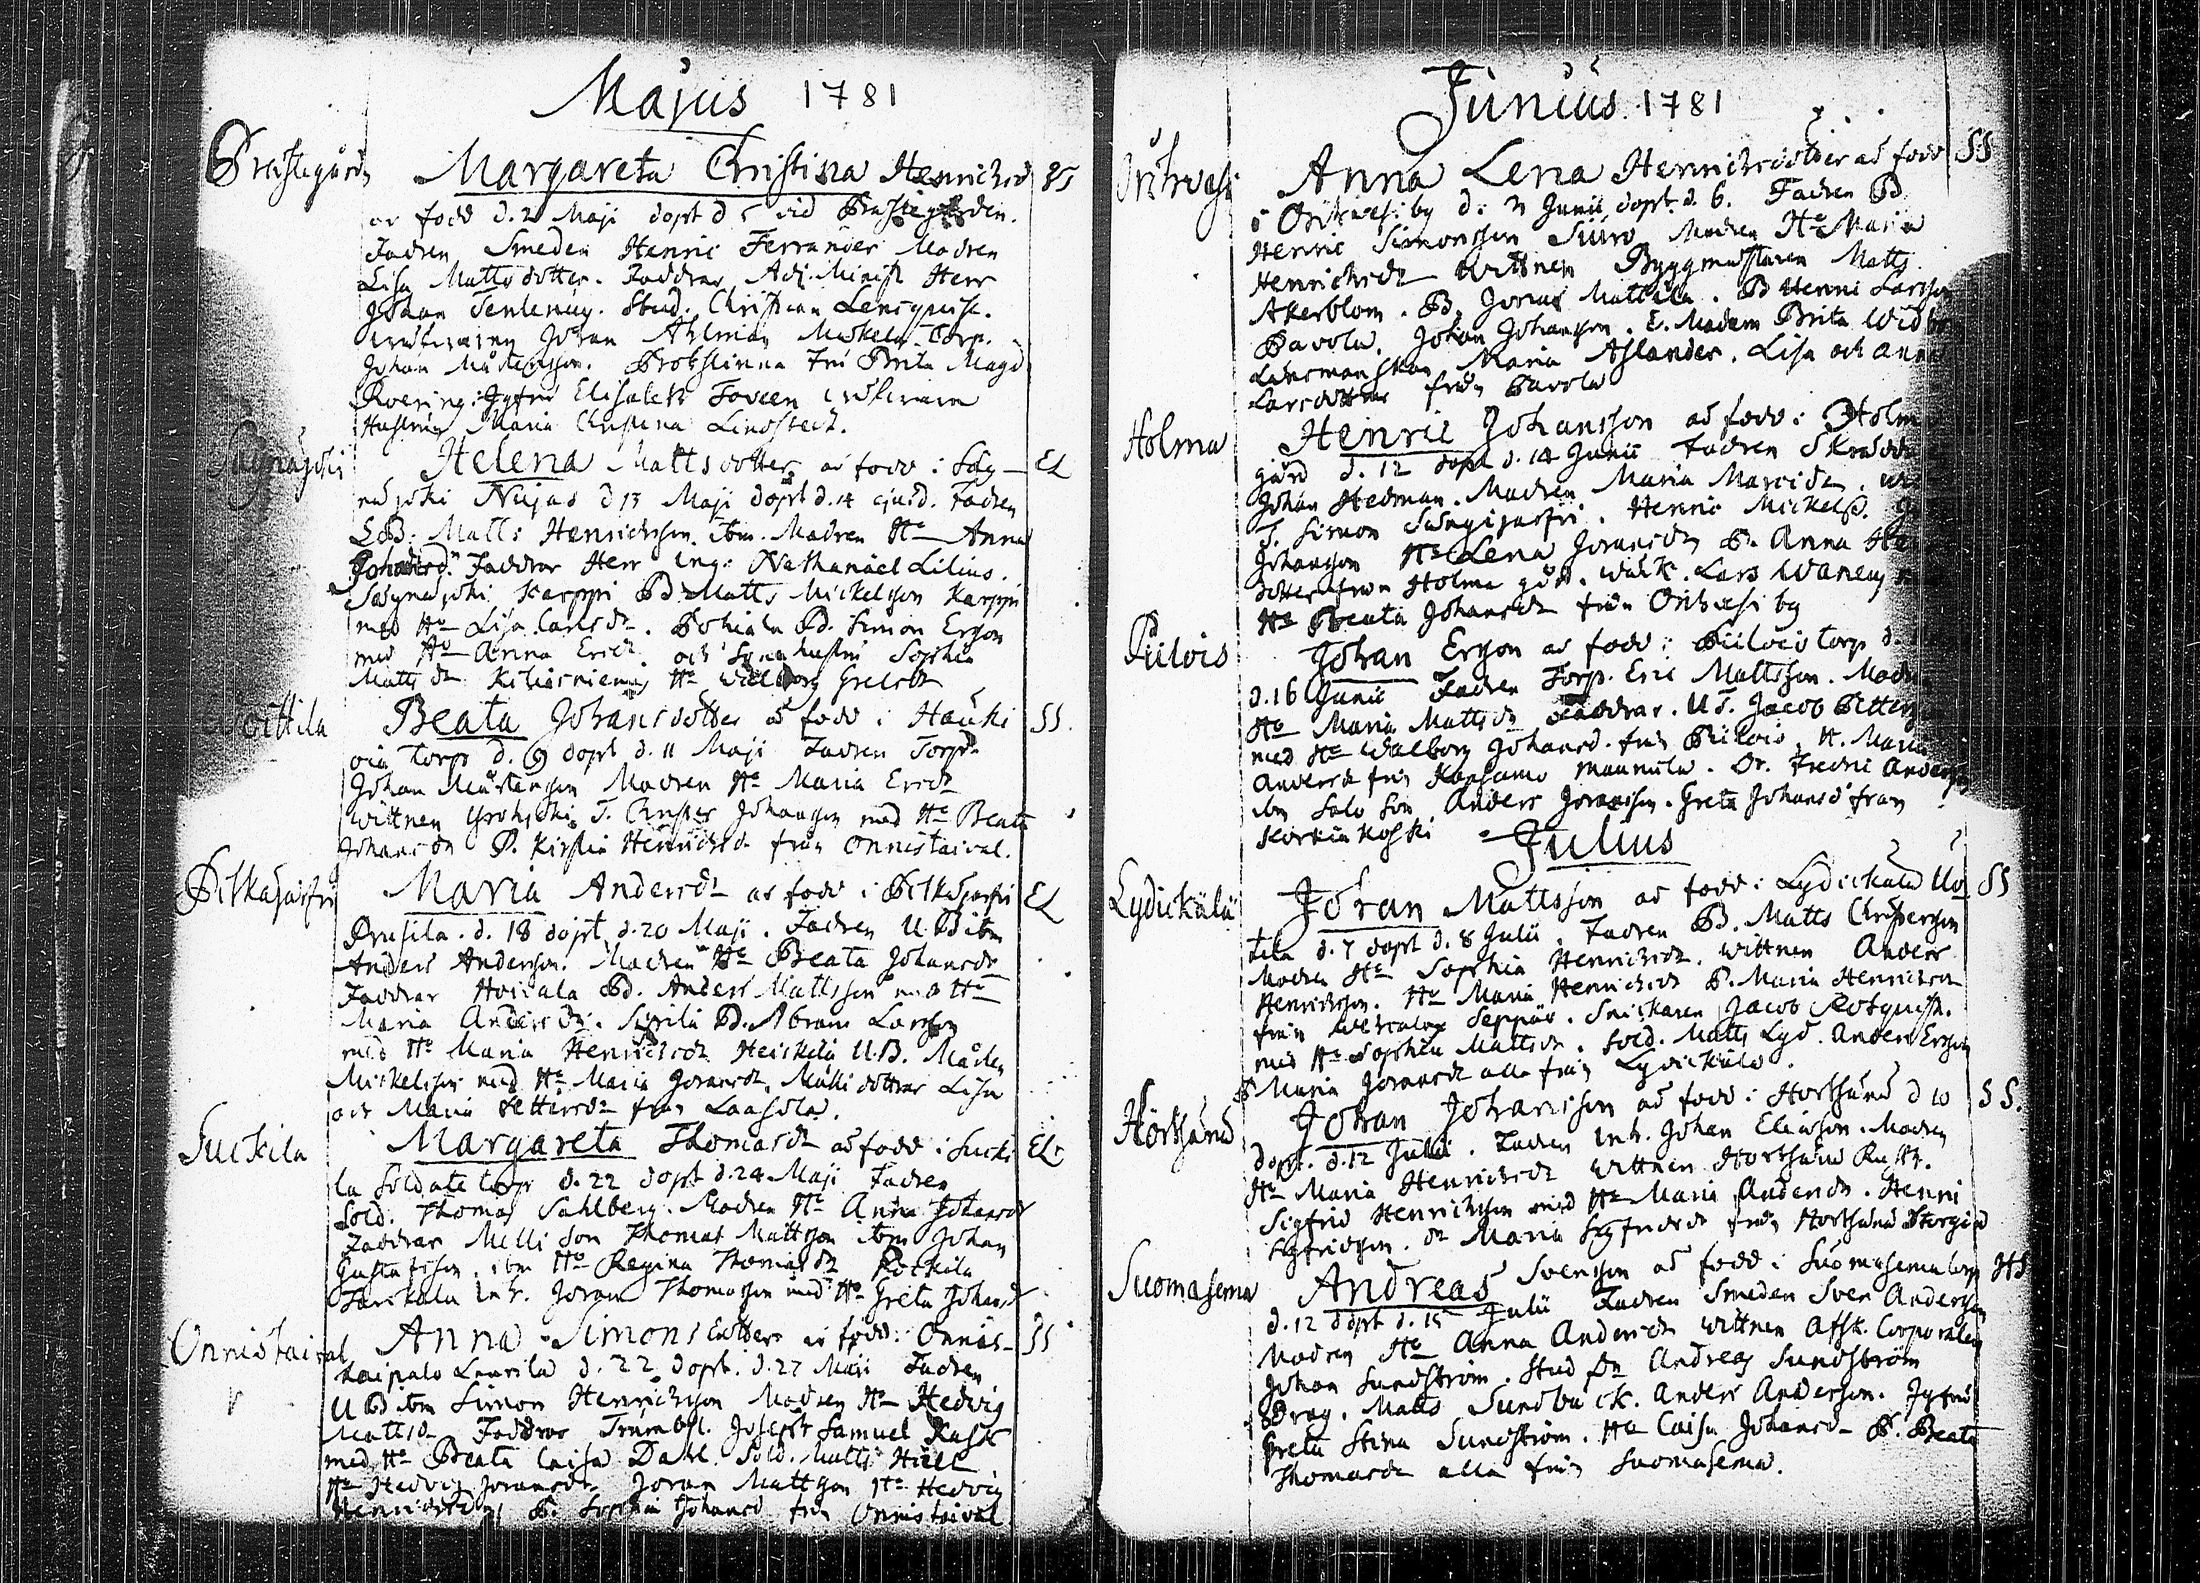 Majus 1781
Prästegården
Margareta Christina Henrichsd SS
är född d. 2 Maji döpt d 5 vid Prästegården.
Fadren Smeden Henric Ferrander Modren
Lisa Matts dotter. Faddrar Adj. Minist Herr
Johan Tenlenius. Stud. Christian Lencqvist.
Johan Ahlman Mickels Torp.
Johan Mårtensson. Probstinna Fru Brita Magd
Roering. Jgfru Elisabeth Foveen
Maria Christina Lindstedt.
Helena Matts dotter är född i Säy- EL
näjoki Nujas d 13 Maji döpt d. 14 ejusd. Fadren
Matts Henrichsson ibm. Modren Hu Anna
Johansd. Faddrar Herr Ing. Nathanael Lilius.
Säynäjoki Karppi B Matts Mickelsson Karppi
med Hu Lisa Larsdr. Pohiala Bd. Simon Ersson
med Hu Anna Ericsd. och Sophia
Matts dr Hu Walborg Grelsdr
Voittila
Beata Johansdotter är född i Hauki SS.
oia Torp d. 9 döpt d. 11 Maji Fadren Torp.
Johan Mårtensson Modren Hu Maria Ericsdr
wittnen T. Christer Johansson med Hu Beata
Johansdr P. Kirstin Henrichsdr från Onnistaival.
Pitkäjärfvi
Maria Andersdr är född i Pitkäjärfvi EL
Prusila. d. 18 döpt d. 20 Maji. Fadren U. B ibm
Anders Andersson. Modren Hu Beata Johansdr
Faddrar Hoivala Bd. Anders Mattsson med Hu
Maria Andersdr. Sipilä Bd. Abram Larsson
med Hu Maria Henrichsdr Heickilä U.B. Mårten
Mickelsson med Hu Maria Joransdr. döttrar Lisa
och Maria Pettersdr från Laasola.
Suckila
Margareta Thomasdr är född i Sucki EL.
la Soldate torp d. 22 döpt d. 24 Maji Fadren
Sold. Thomas Sahlberg. Modren Hu Anna Johansdr
Faddrar Melli Son Thomas Mattsson ibm Johan
Gustafsson. ibm Hu Regina Thomasdr Rockila
Inh. Joran Thomasson med Hu Greta Johansd
Onnistaival
Anna Simons dotter är född i Onnis- SS
taipalo Laurila d. 22 döpt. d. 27 Maii Fadren
U Bd ibm Simon Henrichsson Modren Hu Hedvig
Mattsdr Faddrar Trumbsl. Joseph Samuel Rask
med Hu Beata Caisa Dahl. Sold. Matts Häll
Hu Hedvig Joransdr Joran Mattsson Hu Hedvig
Henrichsdr, P. Sophia Johansd från Onnistaival.
Junius. 1781
Orihvesi
Anna Lena Henrichsdotter är född SS
i Orihvesi by d. Junii döpt d. 6. Fadren Bd
Henric Simonsson Modren Hu Maria
Henrichsdr Wittnen Byggmästaren Matts
Akerblom. B. Joran Mattila. B Henric Larsson
Pavola. Johan Johansson. E. Madam Brita
Länsmanskan Maria Aslander. Lisa och Anna
Larsdöttrar från Pavola
Holma
Henric Johansson är född i Holm
gård d. 12 döpt d. 14 Junii Fadren Skräddr
Johan Hedman. Modren Maria Marcidr.
T. Simon Henric Mickelss.
Johansson Hu Lena Joransdr P. Anna He
dotter från Holma gård. Lars
Hu Beata Johansdr från Orihvesi by
Piilois
Johan Ersson är född i Piilois torp d.
d. 16 Junii Fadren Torp. Eric Mattsson. Modren
Hu Maria Mattsdr Faddrar. U T. Jacob
med Hu Walborg Johansd. från Piilois. H. Maria
Andersdr från Dr. Fredric Andersson
ibm Salo Son Anders Joransson. Greta Johansdr från
Korkiakoski
Julius
Lydickälä
Johan Mattsson är född i Lydickälä Uo SS
tila d. 7 döpt d. 8 Julii. Fadren Bd. Matts Christersson
Modren Hu Sophia Henrichsdr. Wittnen Anders
Henrichsson. Hu Maria Henrichsdr P. Maria Henrichsdr
från Seppäs. Snickaren Jacob Rosqvist.
med Hu Sophia Mattsdr. Sold. Matts Lyd. Anders Ersson
P Maria Joransdr alla från Lydickälä.
Hörtsänä
Johan Johansson är född i Hortsänä d 10 SS.
döpt. d. 12 Julii. Fadren Inh. Johan Eliasson. Modren
Hu Maria Henrichsdr Wittnen Hortsänä Rusth.
Sigfrid Henrichsson med Hu Maria Andersdr. Henric
Sigfridsson. dr Maria Sigfridsdr från Hortsänä Storgård
Suomasema
Andreas Svensson är född i Suomasema torp HS
d. 12 döpt d. 15 Julii Fadren Smeden Sven Andersson
Modren Hu Anna Andersdr Wittnen Afsk. Corporalen
Johan Sundström. Stud Dn Andreas Sundström
Drag. Matts Sundbäck. Anders Andersson. Jgfru
Greta Stina Sundström. Hu Caisa Johansd- P. Beata
Thomasdr alla från Suomasema.